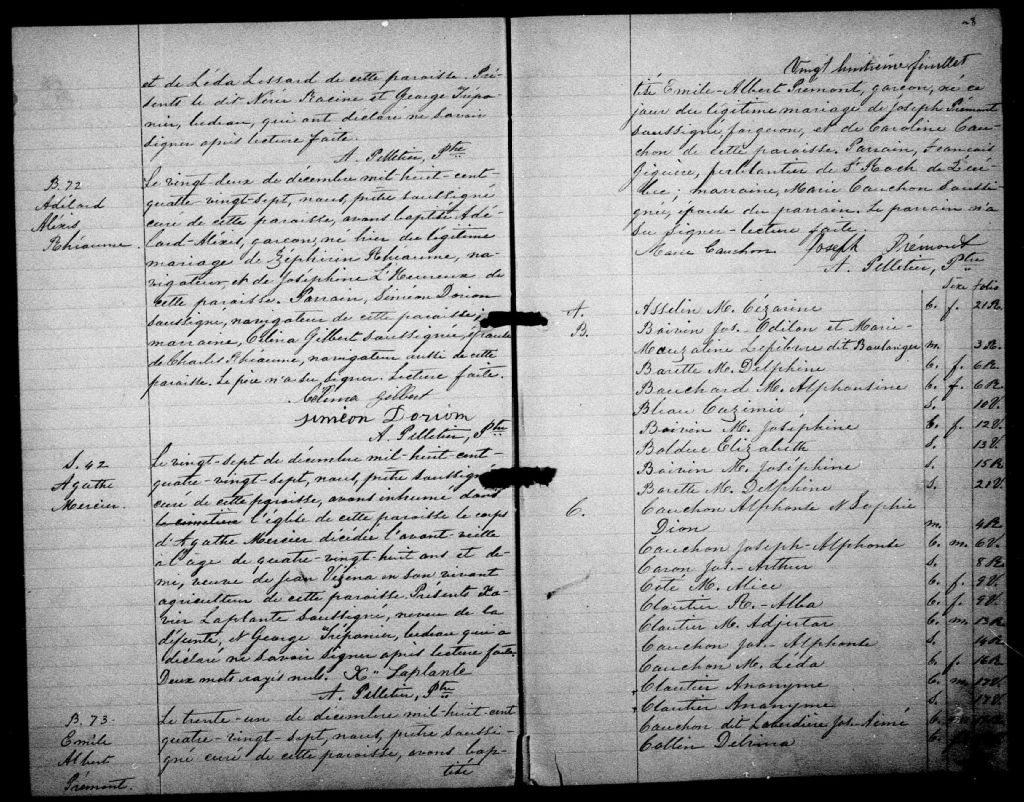 et de Léda Lessard de cette paroisse. Pré-
sents le dit Nérée Racine et George Trépa-
nier, bedeau, qui ont déclaré ne savoir
signer après lecture faite.
A. Pelletier, Ptre
B. 72
Adélard
Alexis
Rhéaume.
Le vingt-deux de décembre mil huit-cent-
quatre-vingt-sept, nous, prêtre soussigné
curé de cette paroisse, avons baptisé Adé-
lard-Alexis, garçon, né hier du légitime
mariage de Zéphirin Rhéaume, na-
vigateur, et de Joséphine L'Heureux de
cette paroisse. Parrain, Siméon Dorion
soussigné, navigateur de cette paroisse,
marraine, Célina Gilbert soussignée, épouse
de Charles Rhéaume, navigateur aussi de cette
paroisse. Le père n'a su signer. Lecture faite.
Célina Gilbert
Siméon Dorion
A. Pelletier, Ptre
S. 42
Agathe
Mercier.
Le vingt-sept de décembre mil huit-cent-
quatre-vingt-sept, nous, prêtre soussigné
curé de cette paroisse, avons inhumé dans
le cimetière l'église de cette paroisse le corps
d'Agathe Mercier décédée l'avant veille
à l'âge de quatre-vingt-huit ans et de-
mi, veuve de Jean Vézina en son vivant
agriculteur de cette paroisse. Présents Xa-
vier Laplante soussigné, neveu de la
défunte, & George Trépanier, bedeau qui a
déclaré ne savoir signer après lecture faite.
Deux mots rayés nuls. Xer Laplante
A. Pelletier, Ptre
B. 73.
Emile
Albert
Prémont.
Le trente-un de décembre mil-huit-cent
quatre-vingt-sept, nous, prêtre soussi-
gné curé de cette paroisse, avons bap-
tisé
28
Vingt huitième feuillet
tisé Emile-Albert Prémont, garçon, né ce
jour du légitime mariage de Joseph Prémont
soussigné forgeron, et de Caroline Cau-
chon de cette paroisse. Parrain, François
Giguère, ferblantier de St Roch de Qué-
bec; marraine, Marie Cauchon soussi-
gnée, épouse du parrain. Le parrain n'a
su signer - lecture faite.
Marie Cauchon Joseph Prémont
A. Pelletier, Ptre
Sexe folio
A. Asselin M. Cézarine b. f. 21R.
B. Boivin Jos.-Odilon et Marie-
Mauzaline Lefebvre dit Boulanger m. 3R.
Barette M. Delphine b. f. 6R.
Bouchard M. Alphonsine b. f. 6R.
Bleau Cazimir s. 10V.
Boivin M. Joséphine b. f. 12V.
Bolduc Elizabeth s. 13V.
Boivin M. Joséphine s. 15R
Barette M. Delphine s. 21V.
C. Cauchon Alphonse & Sophie
Dion m. 4R
Cauchon Joseph-Alphonse b. m. 6V.
Caron Jos.-Arthur s. 8R
Coté M. Alice b. f. 9V.
Cloutier R.-Alba b. f. 9V.
Cloutier M. Adjutor b. m. 13R
Cauchon Jos.-Alphonse s. 14R
Cauchon M. Léda b. f. 16R
Cloutier Anonyme b. m. 17V.
Cloutier Anonyme s. 17V.
Cauchon dit Laverdière Jos. Aimé b. m.
Delima